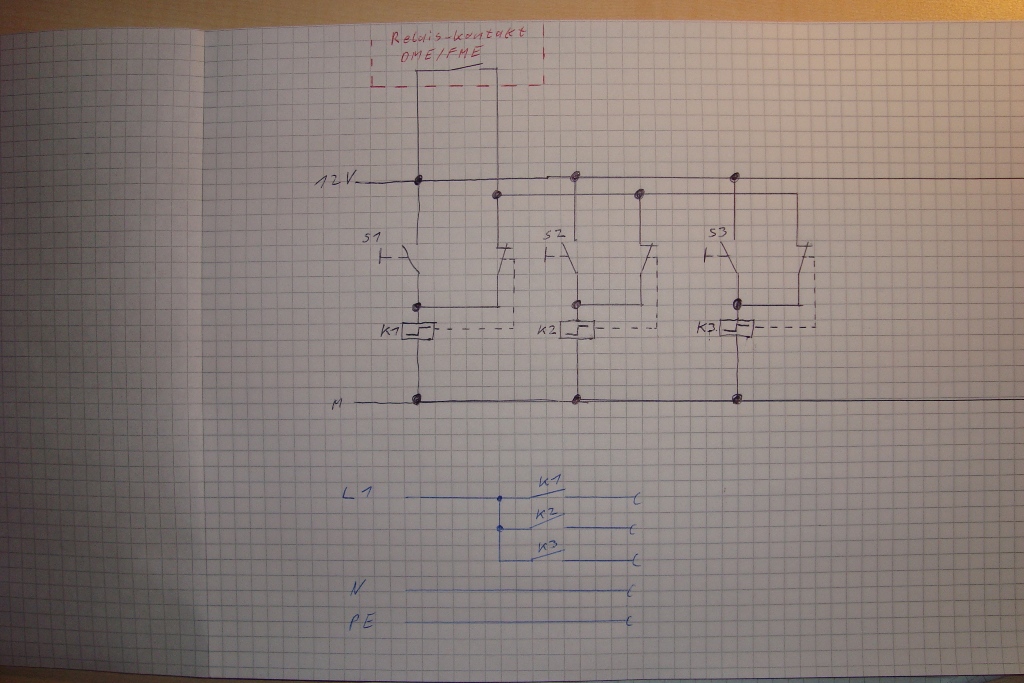 Relais-kontakt
DME/FME
12V
S1 S2 S3
K1 K2 K3
M
L1 K1
K2
K3
N
PE